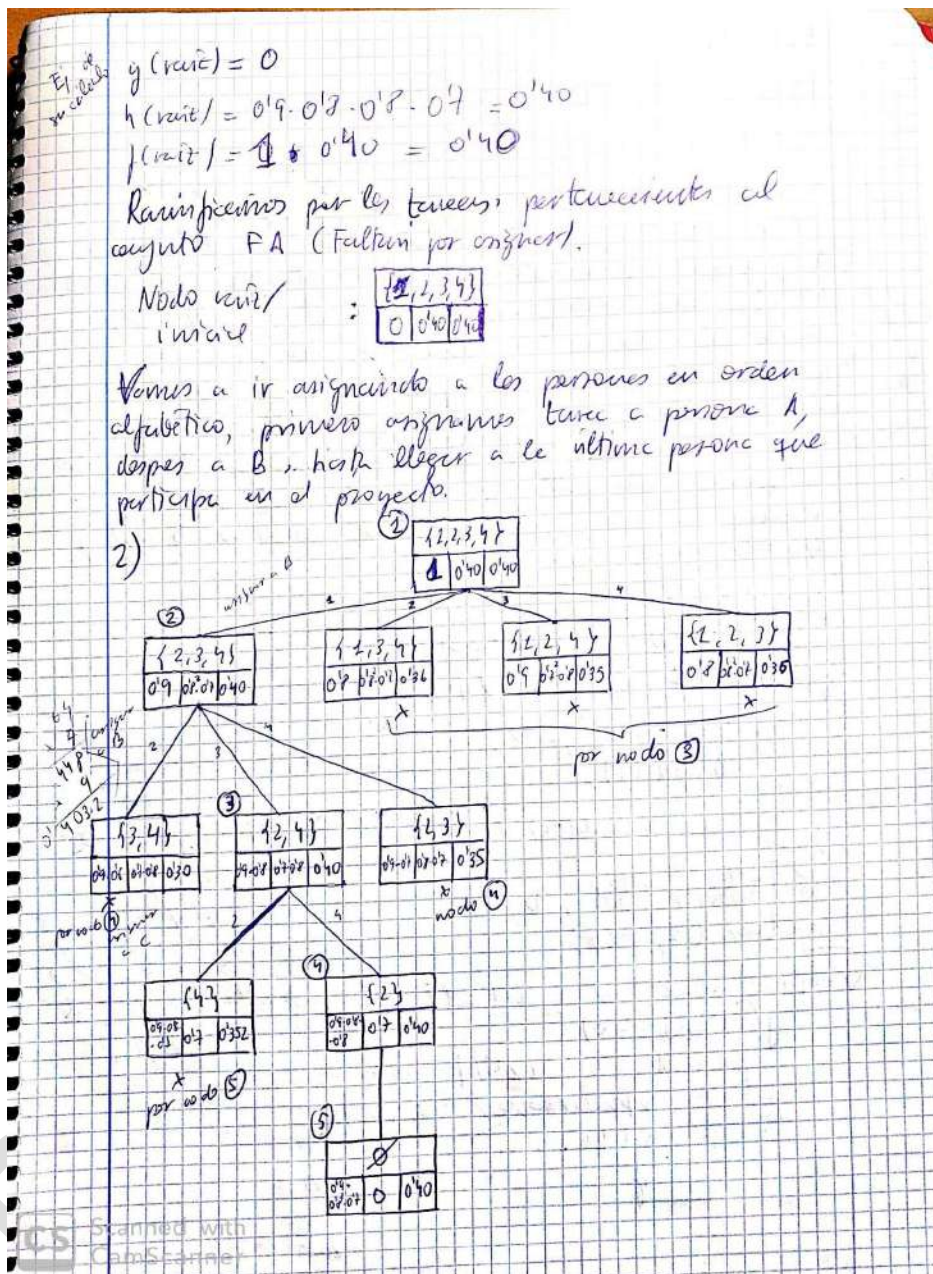 Ej de su calculo
g (raiz) = 0
h (raiz) = 0'9 · 0'8 · 0'8 · 0'7 = 0'40
f (raiz) = 1 · 0'40 = 0'40
Ramificamos por las tareas, pertenecientes al
conjunto FA (Faltan por asignar).
Nodo raiz/ : {1, 2, 3, 4}
inicial 0 0'40 0'40
Vamos a ir asignando a las personas en orden
alfabético, primero asignamos tarea a persona A,
despues a B, hasta llegar a la última persona que
participa en el proyecto.
2)
① {1, 2, 3, 4}
1 0'40 0'40
asignar a A
1 2 3 4
② {2, 3, 4} {1, 3, 4} {1, 2, 4} {1, 2, 3}
0'9 0'8²·0'7 0'40 0'8 0'36 0'9 0'35 0'8 0'36
x x x
por nodo ③
64
7
448
9
0'4032
asignar a B
2 3 4
{3, 4} ③ {2, 4} {2, 3}
0'7·0'8 0'30 0'9·0'8 0'7·0'8 0'40 0'9·0'7 0'8·0'7 0'35
x
por nodo ④
x
nodo ④
asignar a C
2 4
{4} ④ {2}
0'7 0'352 0'9·0'8·0'8 0'7 0'40
x
por nodo ⑤
⑤ Ø
0'9·0'8²·0'7 0 0'40
CS Scanned with
CamScanner